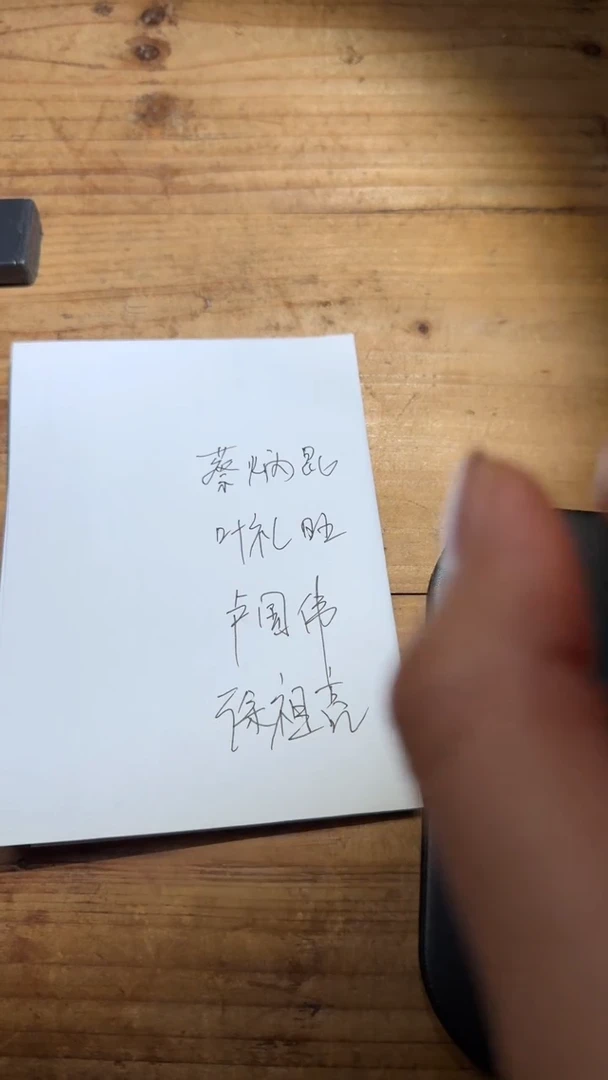 蔡炳昆
叶礼旺
卢国伟
徐祖亮